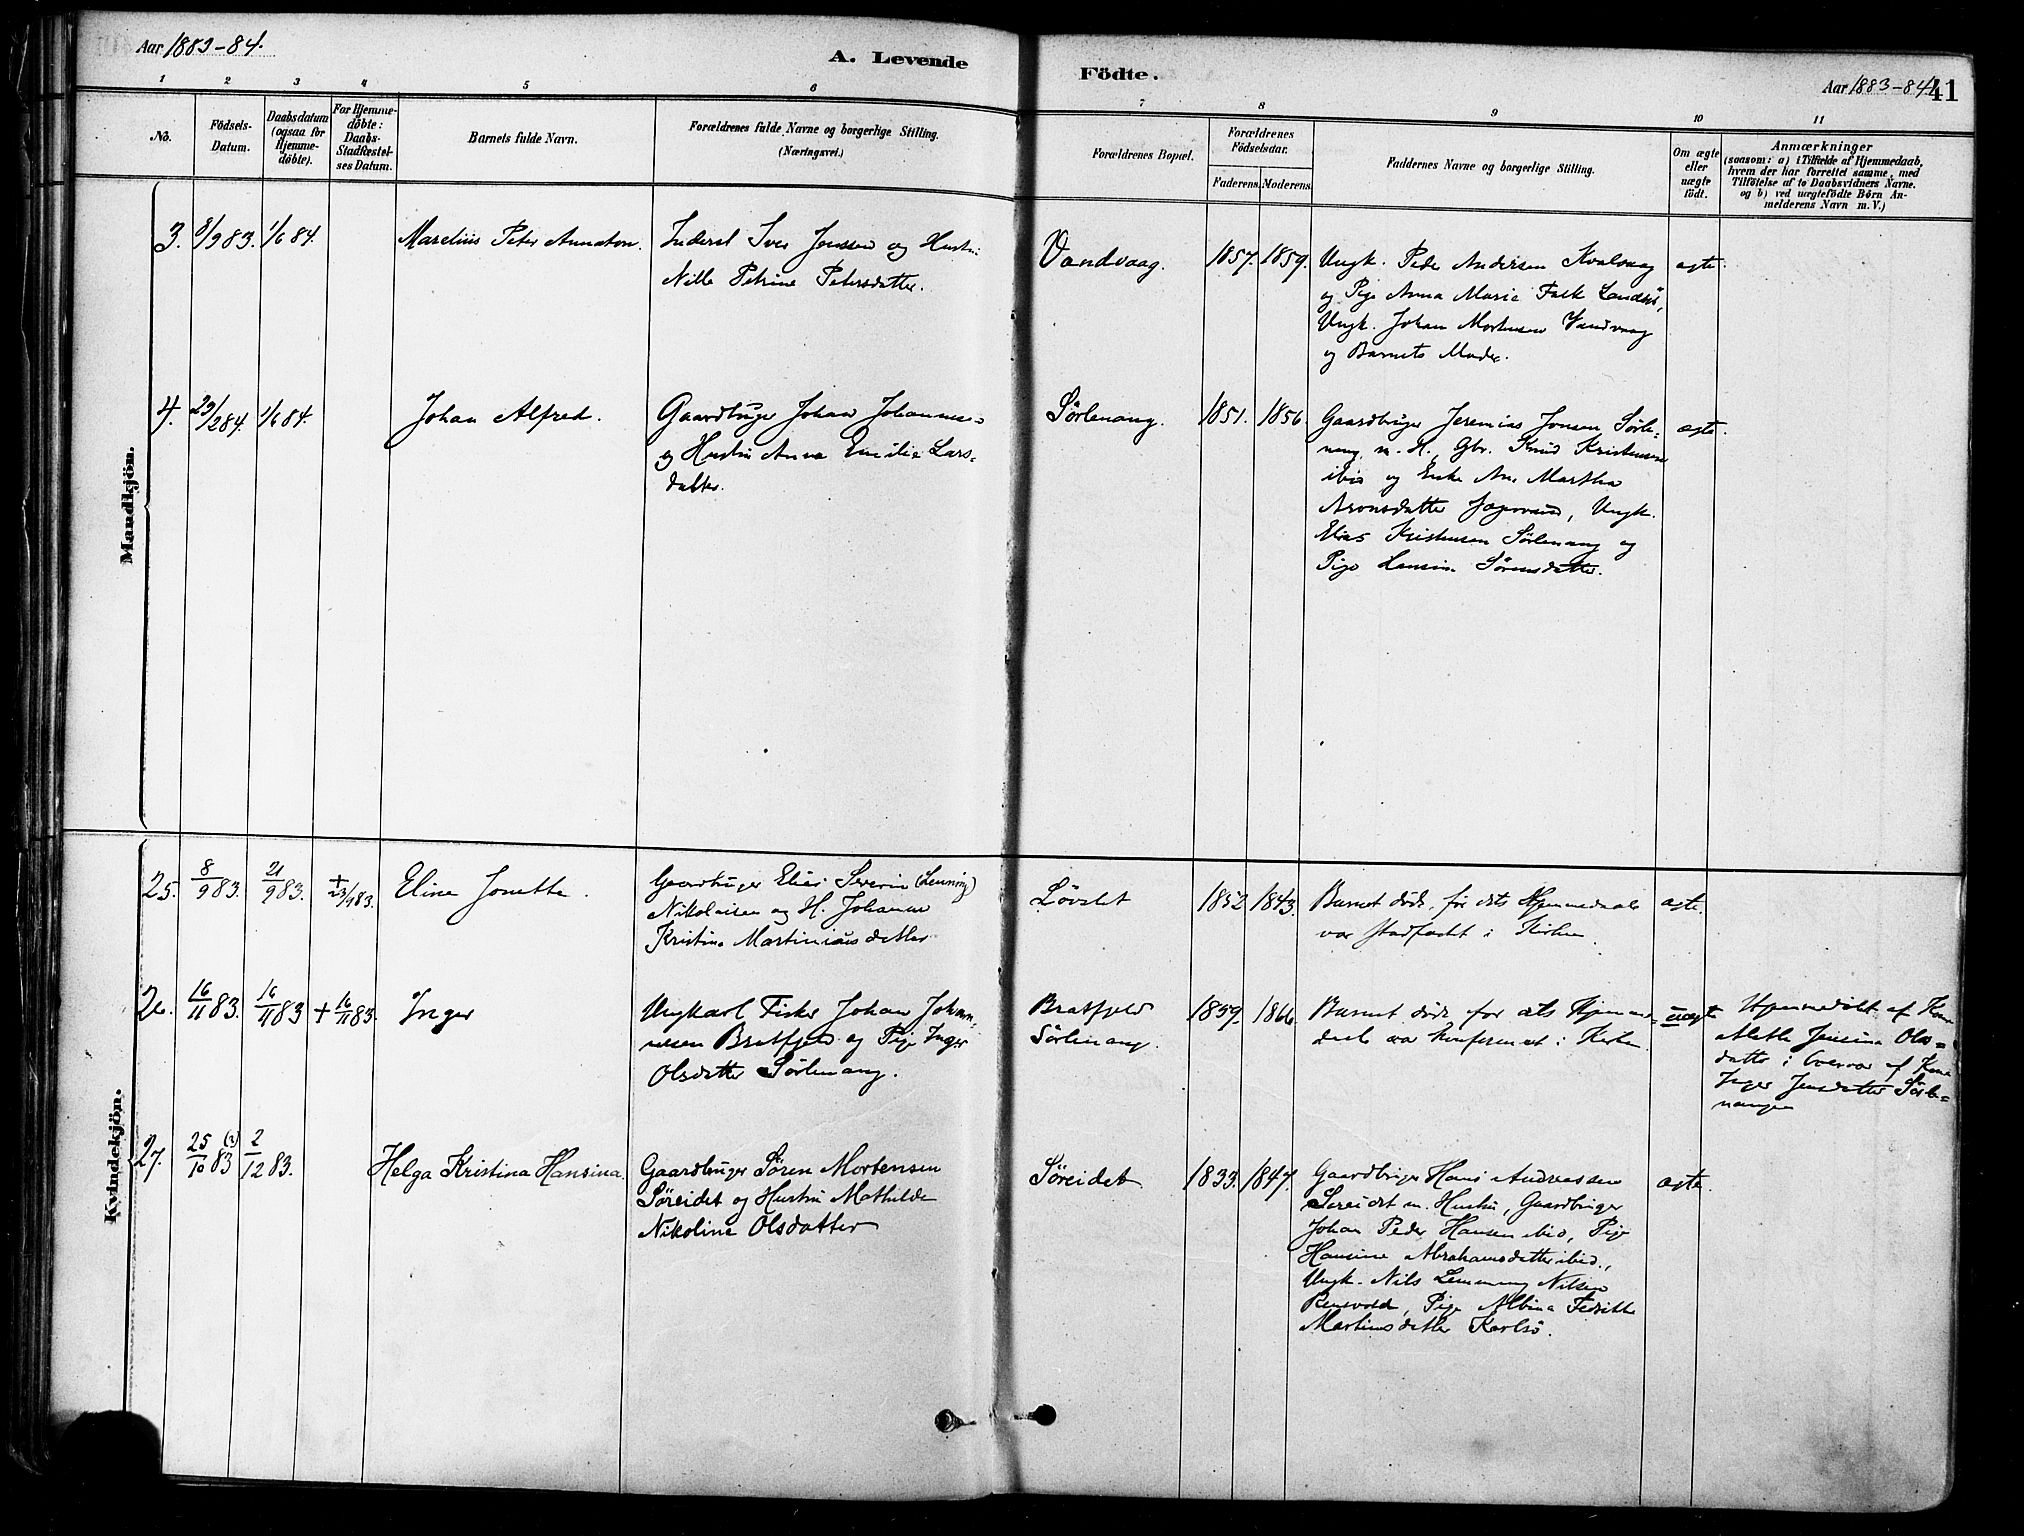 Aar 1883-84.
A. Levende Födte.
Aar 1883-84.
41
1 2 3 4 5 6 7 8 9 10 11
No.
Födsels-
Datum.
Daabsdatum
(ogsaa for
Hjemme-
döbte).
For Hjemme-
döbte:
Daabs-
Stadfæstel-
ses Datum.
Barnets fulde Navn.
Forældrenes fulde Navne og borgerlige Stilling.
(Næringsvei.)
Forældrenes Bopæl.
Forældrenes
Födselsaar.
Faderens. Moderens.
Faddernes Navne og borgerlige Stilling.
Om ægte
eller
uægte
födt.
Anmærkninger
(saasom: a) i Tilfælde af Hjemmedaab,
hvem der har forrettet samme, med
Tilföielse af to Daabsvidners Navne.
og b) ved uægtefödte Börn An-
melderens Navn m. V.)
Mandkjön.
3. 8/9 83. 1/6 84.
Marelius Peter Annaton.
Inderst Iver Jenssen og Hustru
Nille Petrine Petersdatter.
Vandvaag.
1857. 1859.
Ungk. Peder Andersen Kvalvaag
og Pige Anna Marie Falk
Ungk. Johan Mortensen Vandvaag
og Barnets Moder.
ægte.
4. 23/2 84. 1/6 84.
Johan Alfred.
Gaardbruger Johan
og Hustru Anna Emilie Lars-
datter.
Sörlenang.
1851. 1856.
Gaardbruger Jeremias Jonsen Sörle-
nang m. H., Gbr. Knud Kristensen
ibid og Enke Ane Martha
Aronsdatter Ungk.
Elias Kristensen Sörlenang og
Pige Sörensdatter.
ægte.
Kvindekjön.
25. 8/9 83. 21/9 83. + 23/9 83.
Eline Jonette.
Gaardbruger Elias Severin (Lenning)
Nikolaisen og H. Johanne
Kristine Martiniusdatter
Lövslet
1852 1843.
Barnet döde, för dets Hjemmedaab
var stadfæstet i Kirken.
ægte.
26. 16/11 83. 16/11 83 + 16/11 83.
Inger
Ungkarl Fisker Johan Johan-
nessen Bratfjeld og Pige Inger
Olsdatter Sörlenang.
Bratfjeld
Sörlenang.
1859. 1866.
Barnet döde för dets Hjemme-
daab var konfermeret i Kirken.
uægte
Hjemmedöbt af Kone
Alethe Jensine Ols-
datter i Overvær af Kone
Inger Jensdatter Sörle-
nangen
27. 25/10 83 (?) 2/12 83.
Helga Kristina Hansina.
Gaardbruger Sören Mortensen
Söreidet og Hustru Mathilde
Nikoline Olsdatter
Söreidet
1833. 1847.
Gaardbruger Hans Andreassen
Sereidet m. Hustru, Gaardbruger
Johan Peder Hansen ibid, Pige
Hansine Abrahamsdatter ibid.,
Ungk. Nils Lemming Nilsen
Rensvold, Pige Albina Fedrikke
Martinsdatter Karlsö.
ægte.